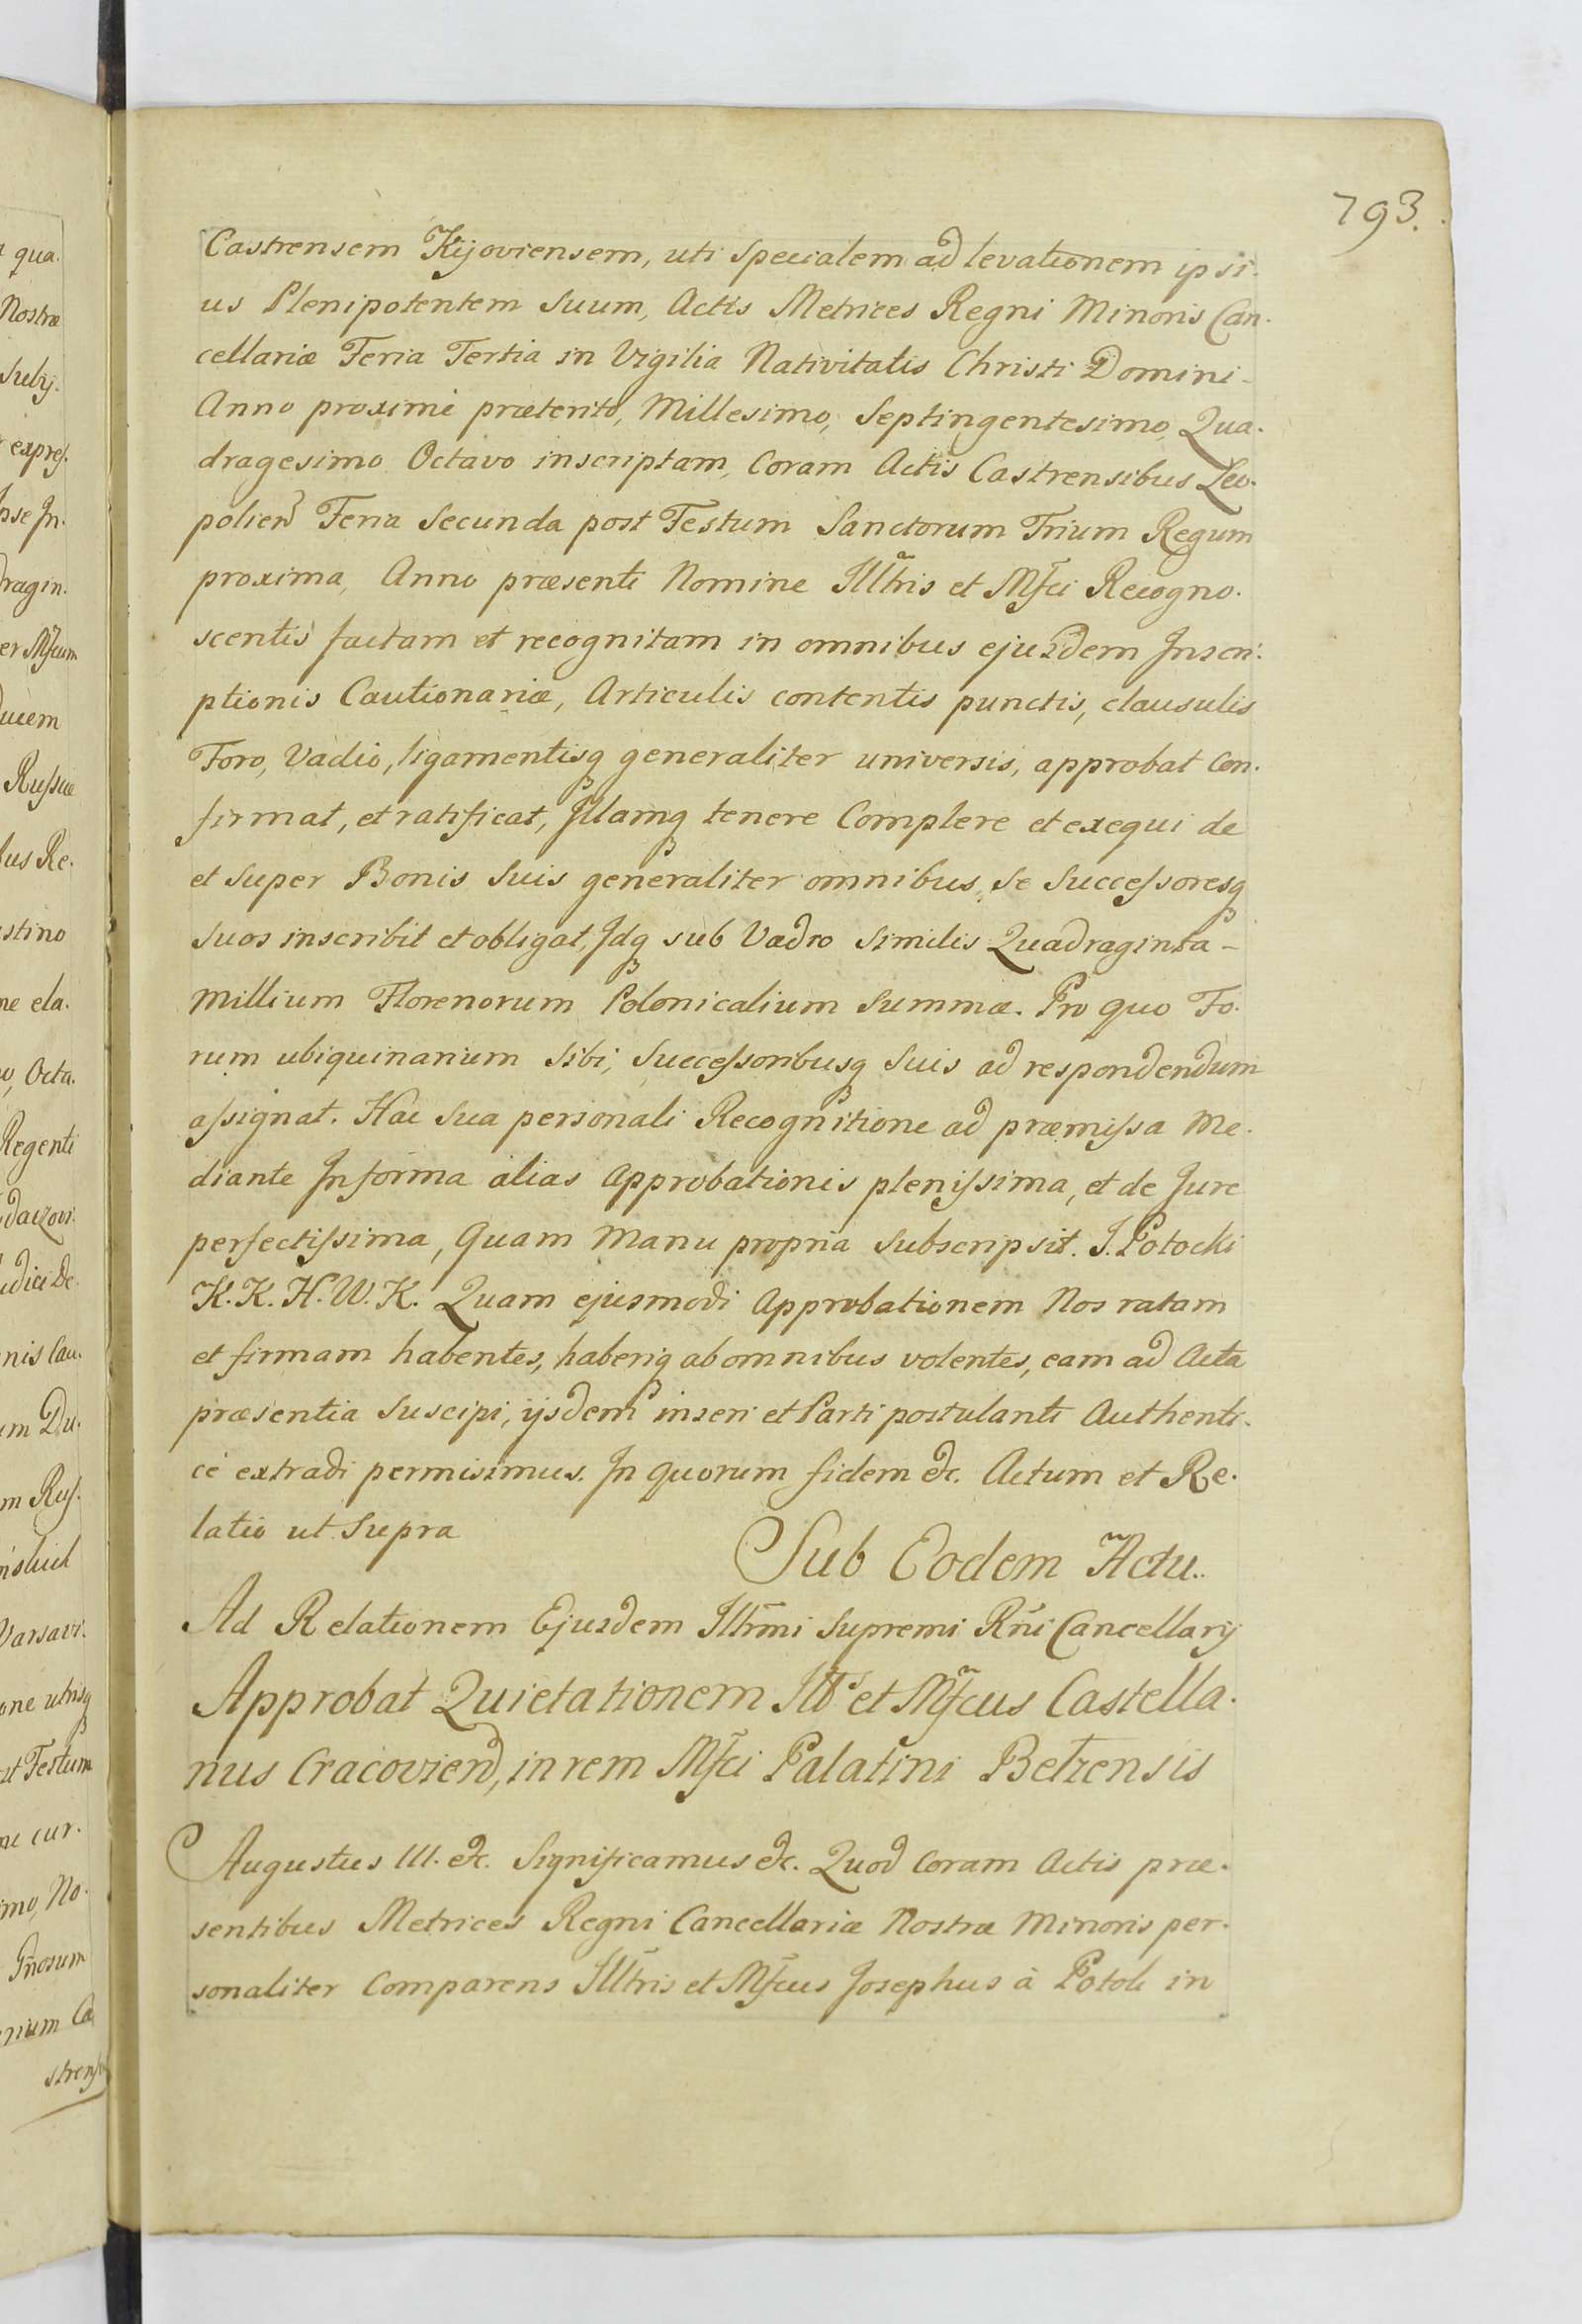 793.
Castrensem Kijoviensem, uti Specialem ad levationem ipsi-
us Plenipotentem Suum, Actis Metrices Regni Minoris Can-
cellariæ Feria Tertia in Vigilia Nativitatis Christi Domini-
Anno proximè præterito, Millesimo, Septingentesimo, Qua-
dragesimo Octavo inscriptam, Coram Actis Castrensibus Leo-
polien Feria Secunda post Festum Sanctorum Trium Regum
proxima, Anno præsenti Nomine Illtris et Mfci Recogno-
scentis factam et recognitam in omnibus ejusdem Inscri-
ptionis Cautionariæ, Articulis contentis punctis, clausulis
Foro, Vadio, ligamentisq generaliter universis, approbat Con-
firmat, et ratificat, Illamq tenere Complere et exequi de
et Super Bonis Suis generaliter omnibus, Se Successoresq
Suos inscribit et obligat, Idq sub Vadio Similis Quadraginta-
Millium Florenorum Polonicalium Summæ. Pro quo Fo-
rum ubiquinarium Sibi, Successoribusq Suis ad respondendum
assignat. Hac Sua personali Recognitione ad præmissa Me-
diante Informa alias Approbationis plenissima, et de Jure
perfectissima, Quam Manu propria Subscripsit. J. Potocki
K. K. H. W. K. Quam ejusmodi Approbationem Nos ratam
et firmam habentes, haberiq ab omnibus volentes, eam ad Acta
præsentia Suscipi, ijsdem inseri et Parti postulanti Authenti-
cè extradi permisimus. In quorum fidem &c. Actum et Re-
latio ut Supra
Sub Eodem Actu..
Ad Relationem Ejusdem Illrmi Supremi Rñi Cancellarij
Approbat Quietationem Illts et Mfcus Castella-
nus Cracovien, in rem Mfci Palatini Belzensis
Augustus III. &c. Significamus &c. Quod Coram Actis præ-
sentibus Metrices Regni Cancellariæ Nostræ Minoris per-
sonaliter Comparens Illtris et Mfcus Josephus à Potok in